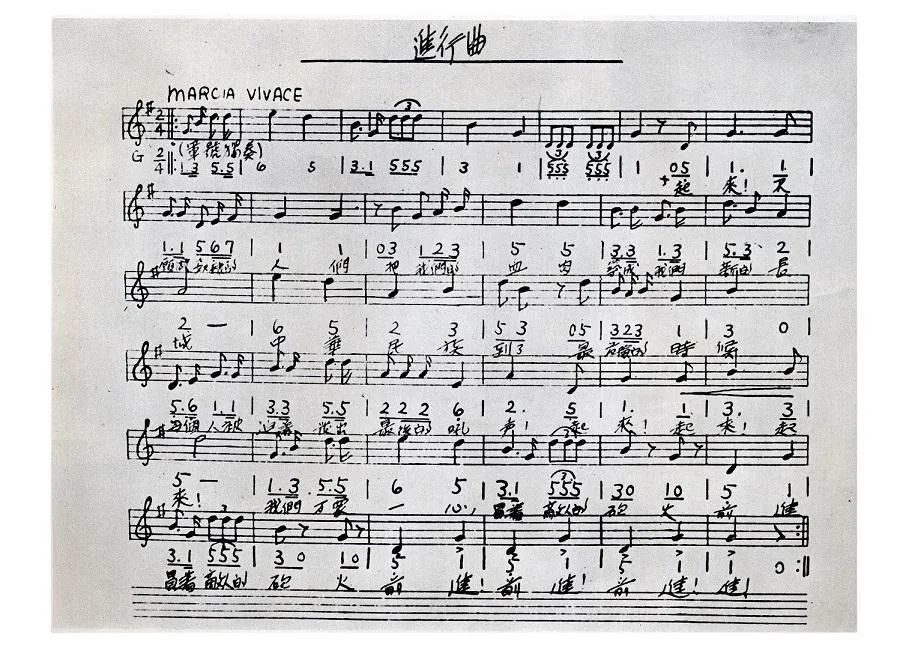 進行曲
MARCIA VIVACE
(軍號獨奏)
G 2/4 ‖: 1.3 5.5 | 6 5 | 3.1 555 | 3 1 | 555 555 | 1 05 | 1. 1 |
起 來! 不
1.1 567 | 1 1 | 03 123 | 5 5 | 3.3 1.3 | 5.3 2 |
願做 奴隸的 人 們 把 我們的 血 肉 築成 我們 新的 長
2 — | 6 5 | 2 3 | 53 05 | 323 1 | 3 0 |
城 中 華 民 族 到了 最 危險的 時 候
5.6 1.1 | 3.3 5.5 | 222 6 | 2. 5 | 1. 1 | 3. 3 |
每個 人被 迫着 發出 最後的 吼 声! 起 來! 起 來! 起
5 — | 1.3 5.5 | 6 5 | 3.1 555 | 30 10 | 5 1 |
來! 我們 万衆 一 心, 冒着 敵人的 砲 火 前 進
3.1 555 | 30 10 | 5 1 | 5 1 | 5 1 | 1 0 :‖
冒着 敵人的 砲 火 前 進! 前 進! 前 進! 進!